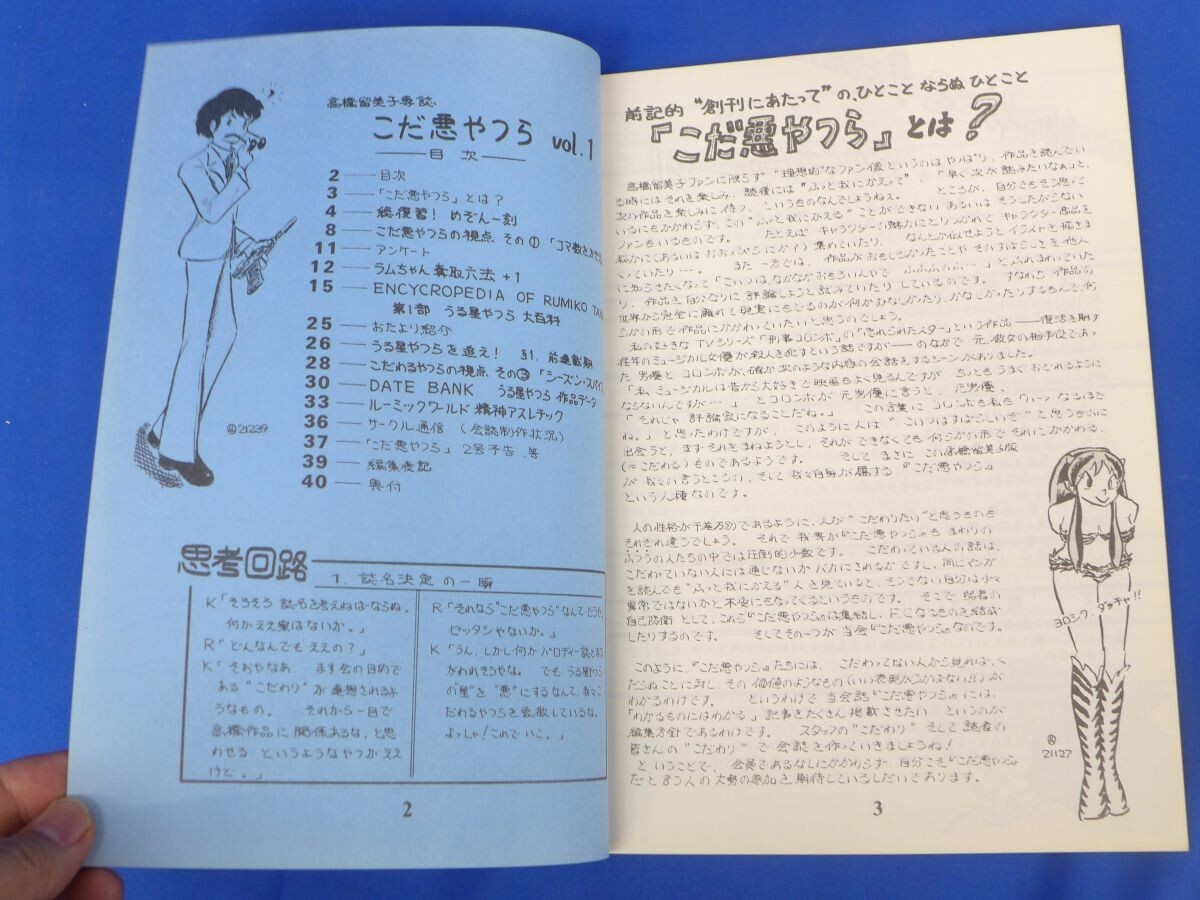 高橋留美子専誌、
こだ悪やつら vol.1
目次
2 目次
3 「こだ悪やつら」とは?
4 総復習! めぞん一刻
8 こだ悪やつらの視点、その① 「コマ数をかぞ
11 アンケート
12 ラムちゃん奪取六法 +1
15 ENCYCROPEDIA OF RUMIKO TAK
第1部 うる星やつら 大百科
25 おたより紹介
26 うる星やつらを追え! §1. 前連載期
28 こだわるやつらの視点、その③ 「シーズン・スパイ
30 DATE BANK うる星やつら 作品データ
33 ルーミックワールド 精神アスレチック
36 サークル通信 (会誌制作状況)
37 「こだ悪やつら」 2号予告、等
39 編集後記
40 奥付
21239
思考回路
1. 誌名決定の一瞬
K「そろそろ 誌名を考えねばならぬ。
何かええ案はないか。」
R「どんなんでも ええの?」
K「そおやなあ、 まず会の目めで
ある“こだわり”が連想されるよ
うなもの。 それから一目で
高橋作品に関係あるな、と思
わせる というようなヤツがええ
けど。」
R「それなら“こだ悪やつら”なんて どうか、
ピッタシやないか。」
K「うん、しかし何か パロディー誌と
がわれそうやな。 でも うる野つら
の“星”を“悪”にするなんて、我々こ
だわるやつらを象徴しているな。
よっしゃ! これでいこ。」
2
前記的 “創刊にあたって”の、ひとこと ならぬ ひとこと
「こだ悪やつら」とは?
高橋留美子ファンに限らず “理想的”なファン像 というのは やっぱり、作品を読んでい
る時には それを楽しみ、読後には “ふっと我にかえって”、「早く次が読みたいなぁ」と、
次の作品を楽しみに待つ、というものなんでしょうねぇ。 ところが、自分でもそう思って
いるにもかかわらず、この“ふっと我にかえる”ことができない あるいは そうしたがらない
ファンもいるものです。 たとえば キャラクターの魅力にとりつかれて キャラクター商品を
密かに(あるいは おおっぴらに か?) 集めていたり、 なんとか似せようと イラストを描きま
くっていたり…。 また 一方では、 作品がおもしろかったことや そのすばらしさを 他人
に知らせたくなって「こいつは なかなか おもろいんやで ふふふのふ…」と ふれまわっていた
り、作品を自分なりに 評論しようと 試みていたり しているのです。 すなわち 作品の
世界から完全に離れて 現実にもどるのが 何かむなしかったり、かなしかったりするもんで、何
らかの形で 作品にかかわっていたいと思うのでしょう。
私の好きな TVシリーズ「刑事コロンボ」の「忘れられたスター」という作品――復活を期す
往年のミュージカル女優が殺人を犯すという話ですが――のなかで 元、彼女の相手役であっ
た 男優と コロンボが、確か 次のような内容の会話をするシーンがありました。
「私、ミュージカルは 昔から大好きで 映画もよく見るんですが ちっともうまく おどれるように
ならないんですが…」 とコロンボが 元男優に言うと、 元男優、
「それじゃ 評論家になることだね。」 この言葉に コロンボも私も「ハハァ なるほど
ね。」と思ったわけですが、 このように 人は “こいつはすばらしいぞ” と思うものに
出会うと、まず それをまねようとし、それが できなくても 何らかの形で それに かかわる、
(=こだわる) ものであるようです。 そして まさに この高橋留美子版
が 我々の言うところの、そして 我々自身が属する『こだ悪やつら』
という人種なのです。
人の性格が千差万別であるように、人が“こだわりたい”と思うものも
それぞれ違うでしょう。 それで 我等が『こだ悪やつら』も まわりの
ふつうの人たちの中では 圧倒的少数です。 こだわっている人の話は、
こだわっていない人には 通じないか バカにされるか ですし、同じマンガ
を読んでも“ふっと我にかえる”人を見ていると、そうでない自分は少々
異常ではないかと 不安にもなってくるというものです。 そこで 弱者の
自己防衛として、これら『こだ悪やつら』は集結し、F.C.なるものを結成
したりするのです。 そして その一つが 当会『こだ悪やつら』なのです。
このように、『こだ悪やつら』たちには、 こだわってない人から見れば、く
だらぬことに対し、その 価値のようなもの (いい表現がうかばない!!) が
わかるわけです。 というわけで 当会誌『こだ悪やつら』には、
「わかるものにはわかる」記事をたくさん 掲載させたい というのが
編集方針であるわけです。 スタッフの“こだわり” そして 読者の
皆さんの“こだわり”で 会誌を作っていきましょうね!
ということで、会員であるなしにかかわらず、自分こそ『こだ悪やつら』
だと言う人の 大勢の参加を 期待しているしだいであります。
ヨロシク、ダッチャ!!
21127
3